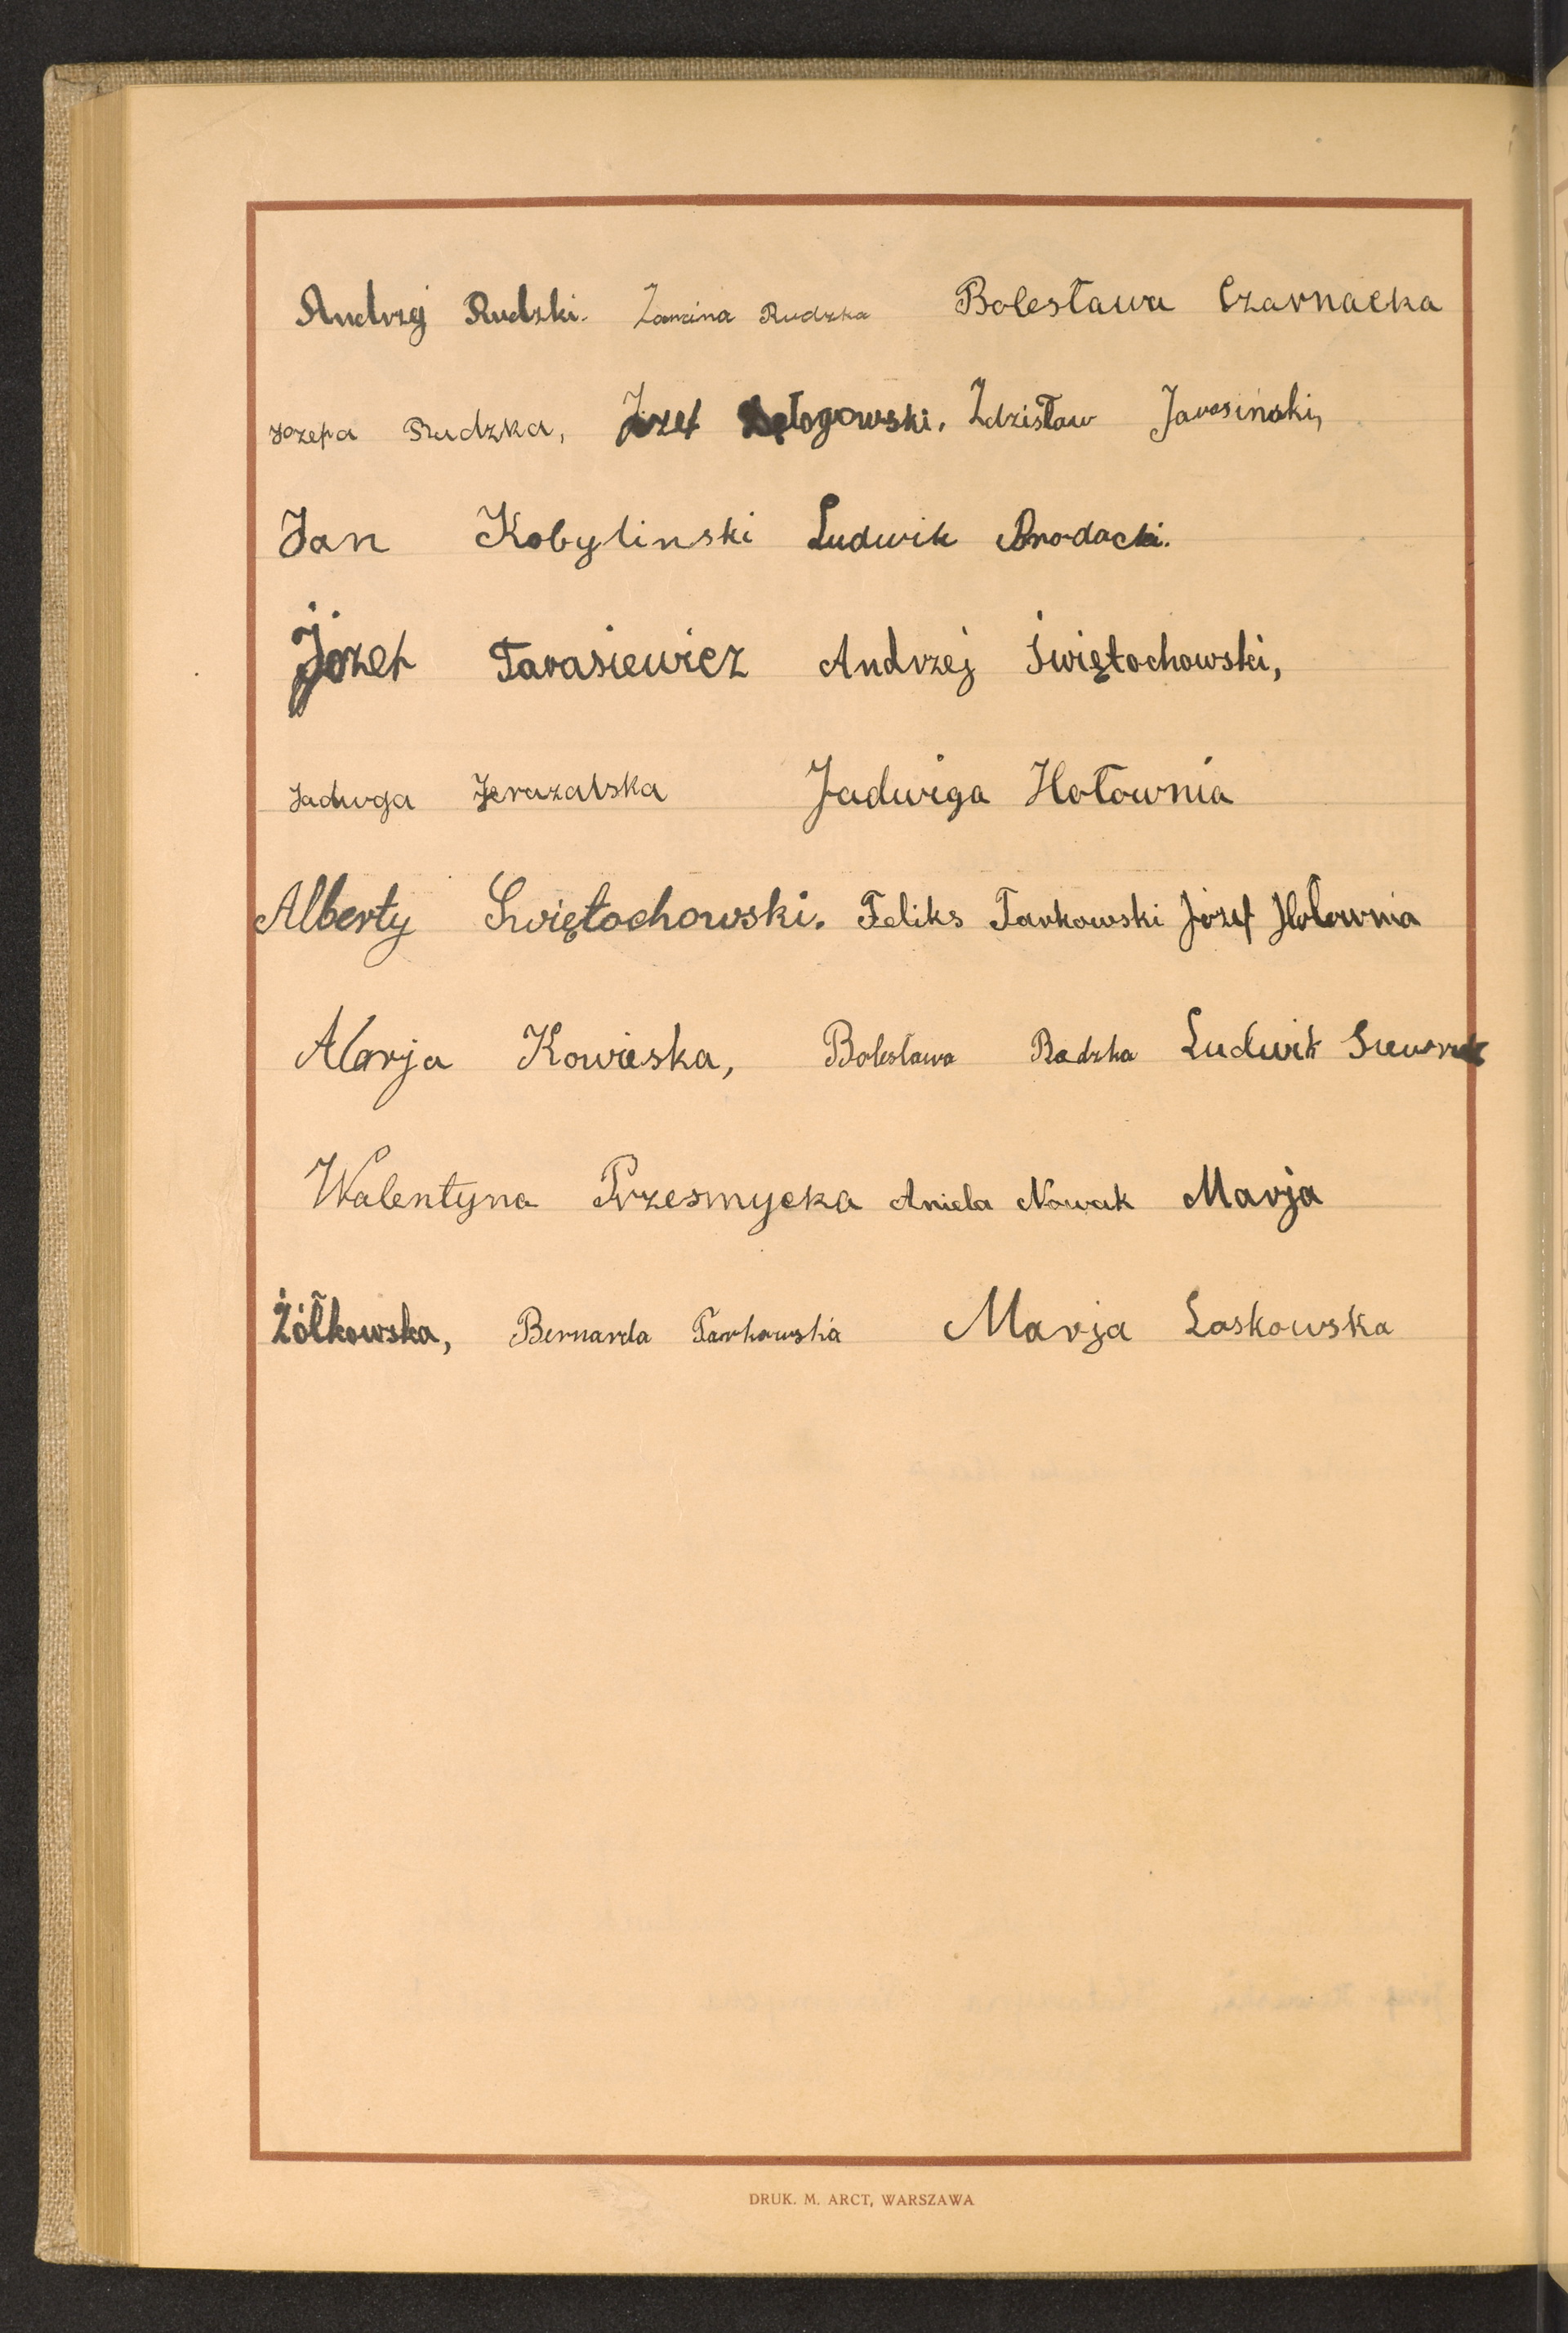 Andrzej Rudzki. Janina Rudzka Bolesława Czarnacka
Jozefa Rudzka, Józef Zdzisław Jarosiński,
Jan Kobylinski Ludwik Brodacki.
Józef Tarasiewicz Andrzej Świętochowski,
Jadwga Jerazalska Jadwiga Hołownia
Alberty Swiętochowski. Feliks Tarkowski Józef Hołownia
Marja Kowieska, Bolesława Radzka Ludwik
Walentyna Przesmycka Aniela Nowak Marja
Żółkowska, Bernarda Tarkowska Marja Laskowska
DRUK. M. ARCT, WARSZAWA